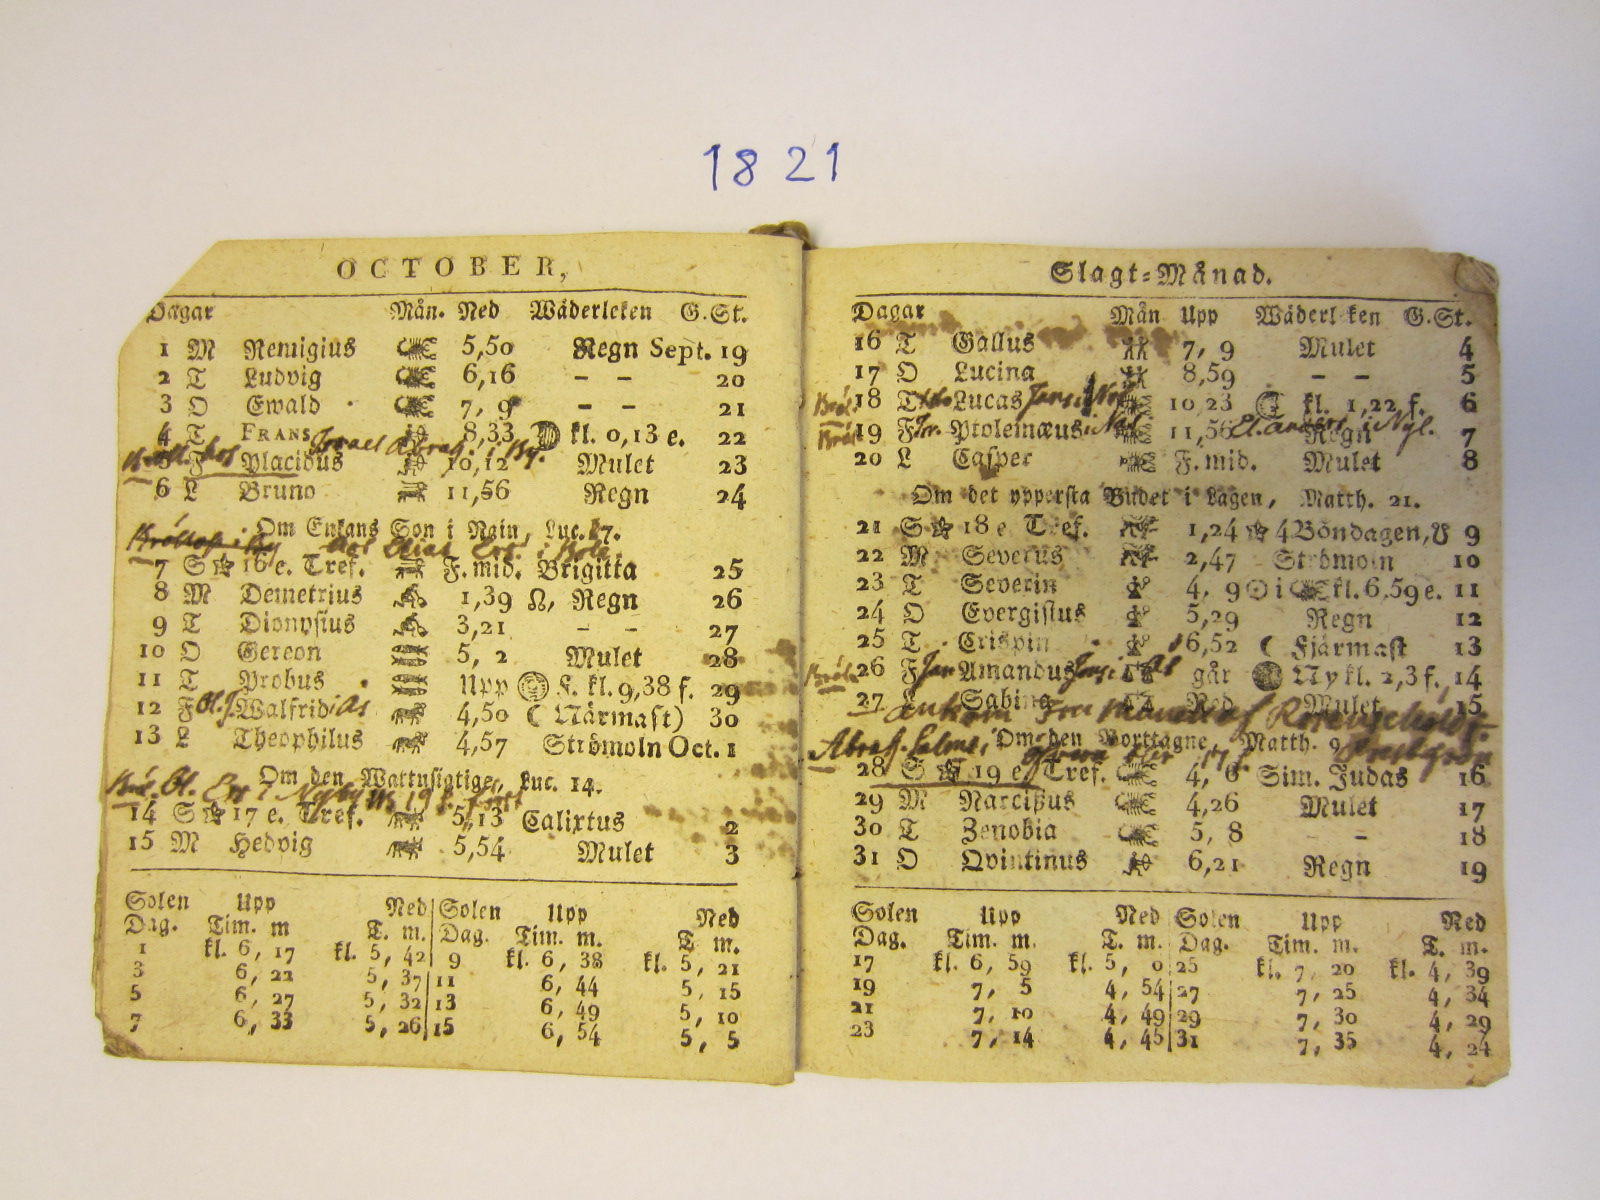 1821
OCTOBER,
Dagar Mån. Ned Wäderleken G.St.
1 M Remigius 5,50 Regn Sept. 19
2 T Ludvig 6,16 – – 20
3 O Ewald 7, 9 21
4 T FRANS 8,33 kl. 0,13 e. 22
5 F Placidus 10,12 Mulet 23
6 L Bruno 11,56 Regn 24
Om Enkans Son i Nain, Luc. 7.
7 S 16 e. Tref. F.mid. Brigitta 25
8 M Demetrius 1,39 ☊, Regn 26
9 T Dionysius 3,21 – – 27
10 O Gereon 5, 2 Mulet 28
11 T Probus Upp F. kl. 9,38 f. 29
12 F Walfrid 4,50 ( Närmast) 30
13 L Theophilus 4,57 Strömoln Oct. 1
Om den Wattusigtige, Luc. 14.
14 S 17 e. Tref. 5,13 Calixtus 2
15 M Hedvig 5,54 Mulet 3
Solen Upp Ned Solen Upp Ned
Dag. Tim. m T. m. Dag. Tim. m. T. m.
1 kl. 6, 17 kl. 5, 42 9 kl. 6, 38 kl. 5, 21
3 6, 22 5, 37 11 6, 44 5, 15
5 6, 27 5, 32 13 6, 49 5, 10
7 6, 33 5, 26 15 6, 54 5, 5
Slagt-Månad.
Dagar Mån Upp Wäderleken G.St.
16 T Gallus 7, 9 Mulet 4
17 O Lucina 8,59 – – 5
18 T Lucas 10,23 kl. 1,22 f. 6
19 F Ptolemæus 11,56 Regn 7
20 L Casper F. mid. Mulet 8
Om det yppersta Budet i Lagen, Matth. 21.
21 S 18 e Tref. 1,24 4 Böndagen, ☋ 9
22 M Severus 2,47 Strömoln 10
23 T Severin 4, 9 ☉ i kl. 6,59 e. 11
24 O Evergistus 5,29 Regn 12
25 T Crispin 6,52 ( Fjärmast 13
26 F Amandus går Ny kl. 2,3 f. 14
27 L Sabina Ned Mulet 15
Om den Borttagne, Matth. 9
28 S 19 e Tref. 4, 6 Sim. Judas 16
29 M Narcissus 4,26 Mulet 17
30 T Zenobia 5, 8 – – 18
31 O Qvintinus 6,21 Regn 19
Solen Upp Ned Solen Upp Ned
Dag. Tim. m. T. m. Dag. Tim. m. T. m.
17 kl. 6, 59 kl. 5, 0 25 kl. 7, 20 kl. 4, 39
19 7, 5 4, 54 27 7, 25 4, 34
21 7, 10 4, 49 29 7, 30 4, 29
23 7, 14 4, 45 31 7, 35 4, 24